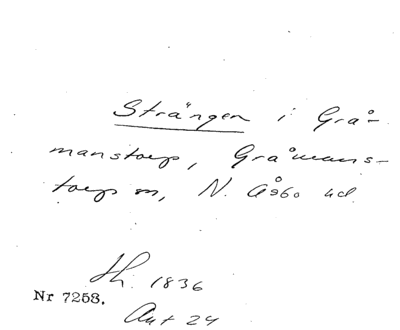 Strängen i Grå-
manstorp, Gråmans-
torps sn, N. Åsbo hd
Lh. 1836
Nr 7258.
Akt 24